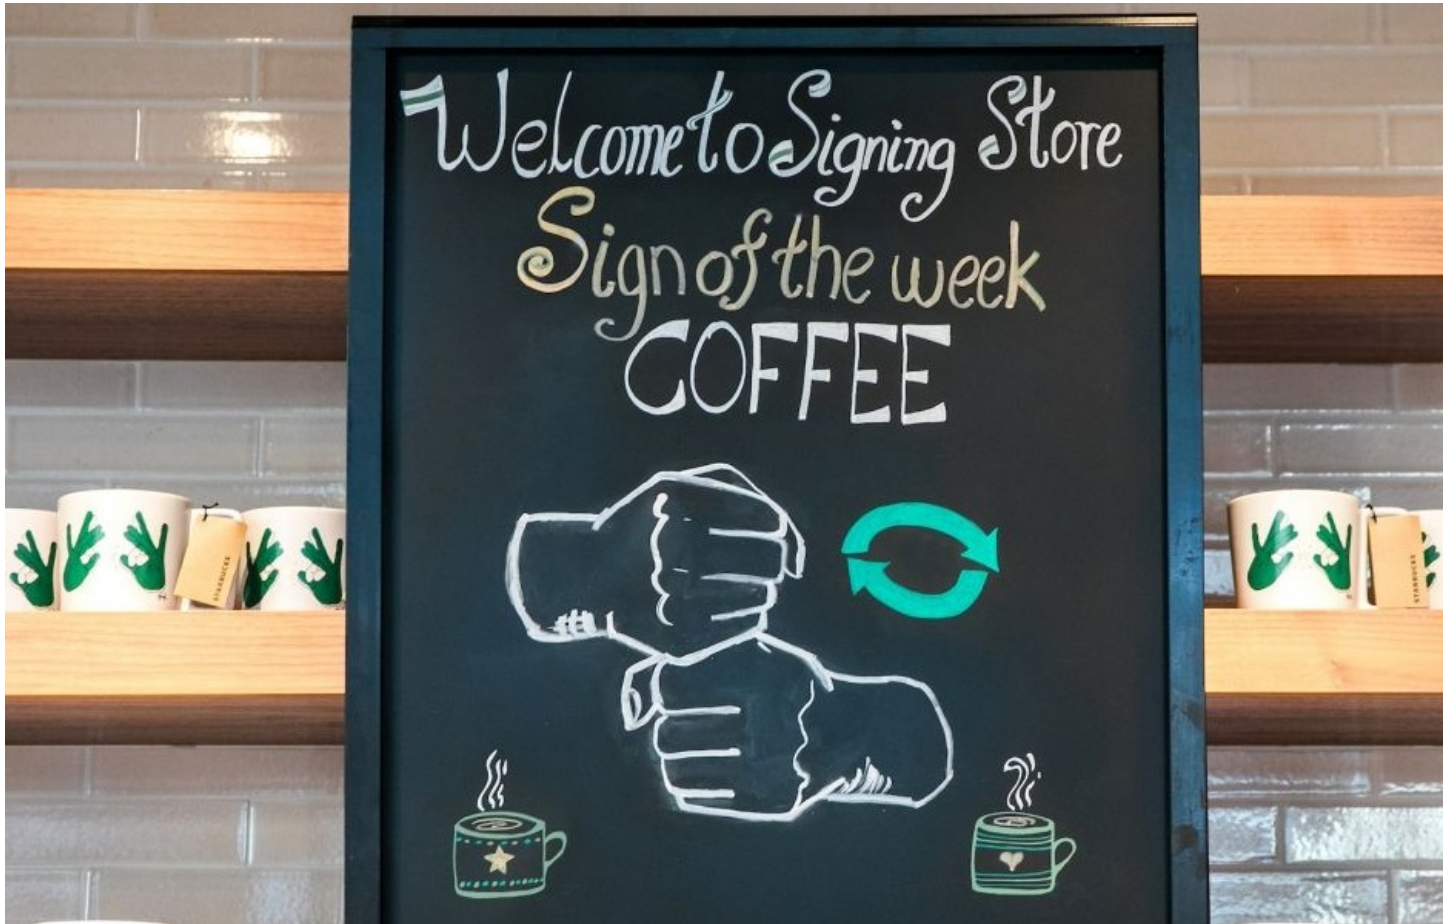 Welcome to Signing Store
Sign of the week
COFFEE
STARBUCKS
STARBUCKS